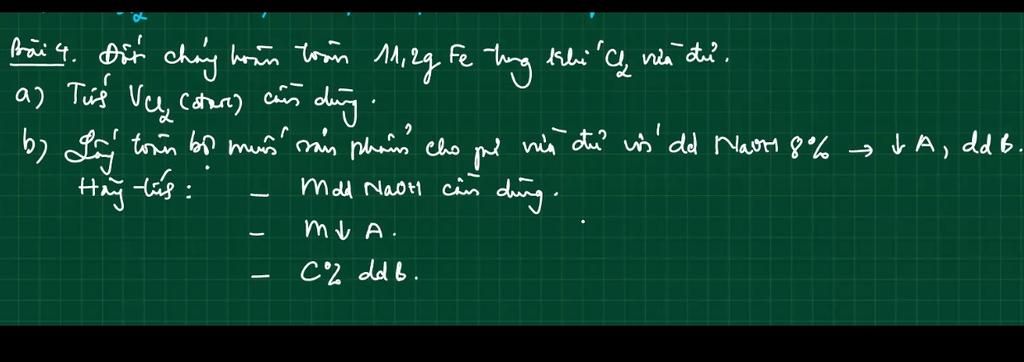 Bài 4. Đốt cháy hoàn toàn 11,2g Fe trong khí Cl₂ vừa đủ.
a) Tính V Cl₂ (đktc) cần dùng.
b) Lấy toàn bộ muối sản phẩm cho pứ vừa đủ với dd NaOH 8% → ↓ A, dd B.
Hãy tính : – mdd NaOH cần dùng.
– m↓ A.
– C% dd B.